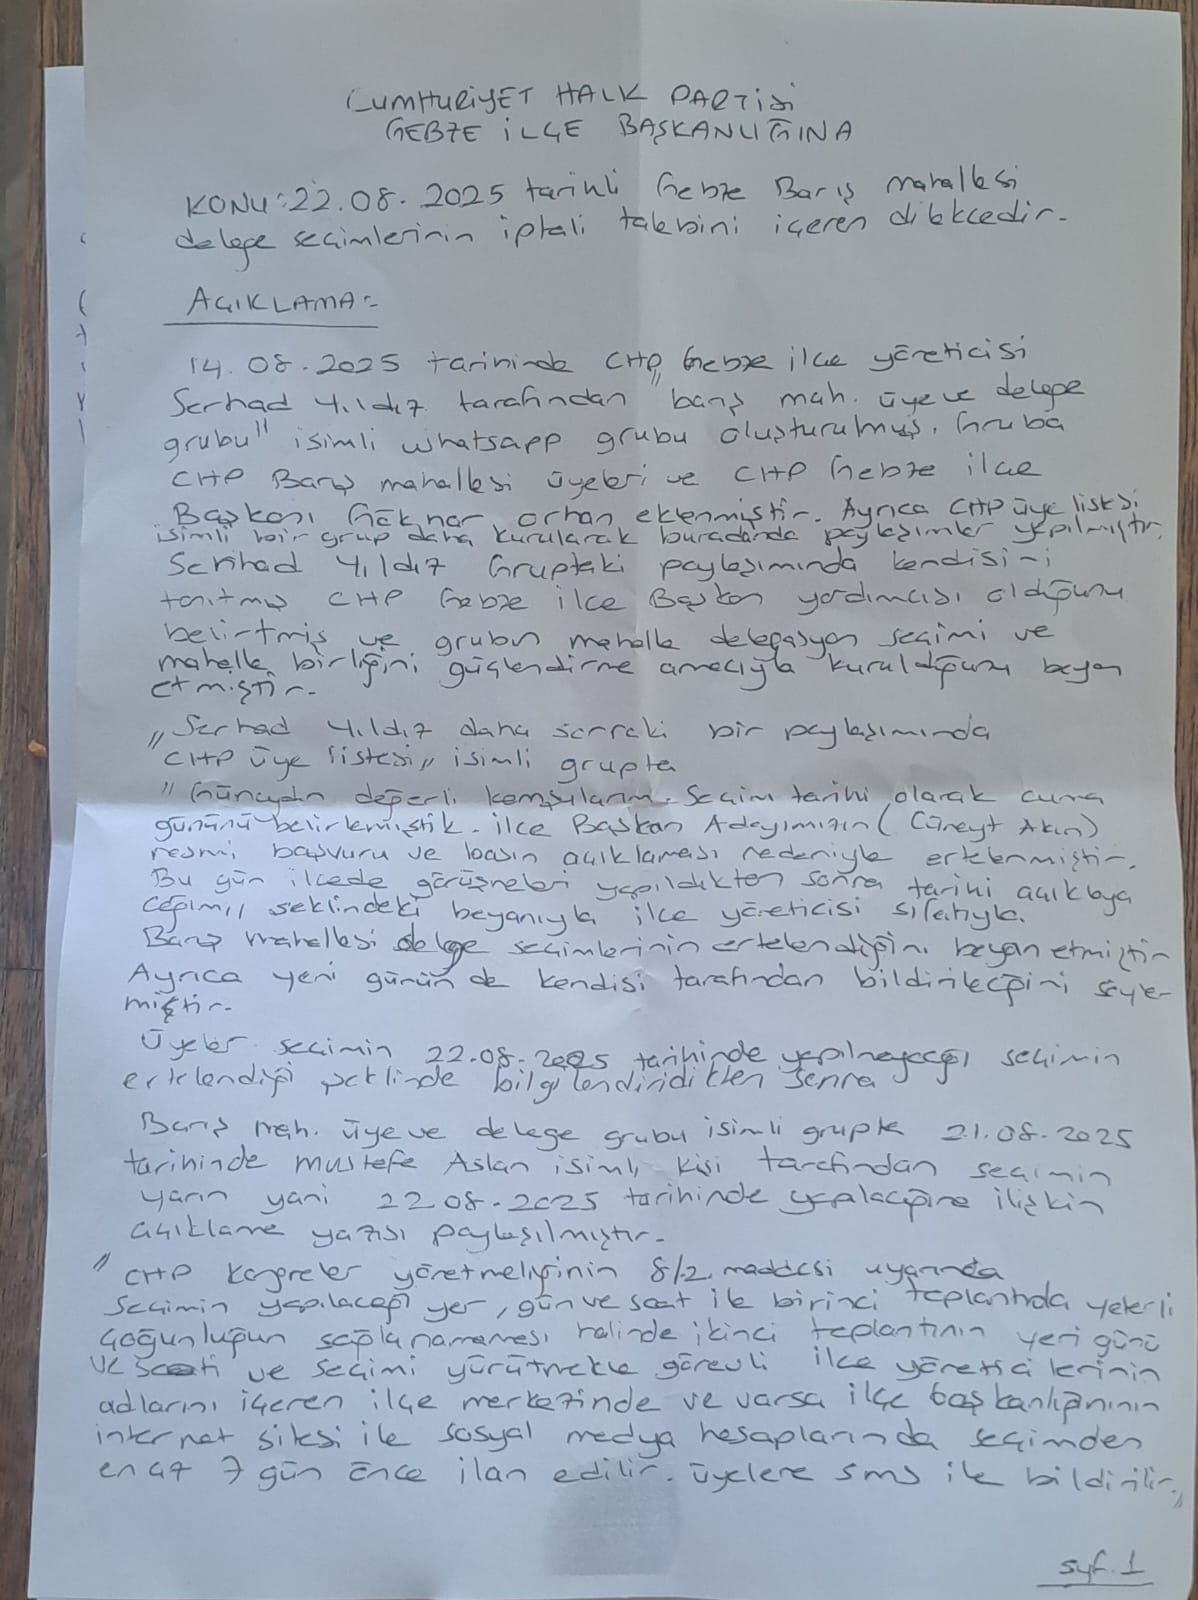 CUMHURİYET HALK PARTİSİ
GEBZE İLÇE BAŞKANLIĞINA
KONU: 22.08.2025 tarihli Gebze Barış mahallesi
delege seçimlerinin iptali talebini içeren dilekçedir.
AÇIKLAMA:-
14.08.2025 tarihinde CHP Gebze ilçe yöneticisi
Serhad Yıldız tarafından "barış mah. üye ve delege
grubu" isimli whatsapp grubu oluşturulmuş. Gruba
CHP Barış mahallesi üyeleri ve CHP Gebze ilçe
Başkanı Gökhan orhan eklenmiştir. Ayrıca CHP üye listesi
isimli bir grup daha kurularak buradanda paylaşımlar yapılmıştır.
Serhad Yıldız Gruptaki paylaşımında kendisini
tanıtmış CHP Gebze ilçe Başkan yardımcısı olduğunu
belirtmiş ve grubun mahalle delegasyon seçimi ve
mahalle birliğini güçlendirme amacıyla kurulduğunu beyan
etmiştir.
"Serhad Yıldız daha sonraki bir paylaşımında
CHP üye listesi" isimli grupta
"Günaydın değerli komşularım. Seçim tarihi olarak cuma
gününü belirlemiştik. ilçe Başkan Adayımızın (Cüneyt Akın)
resmi başvuru ve basın açıklaması nedeniyle ertelenmiştir.
Bu gün ilçede görüşmeleri yapıldıktan sonra tarihi açıklaya
cağım" şeklindeki beyanıyla ilçe yöneticisi sıfatıyla.
Barış mahallesi delege seçimlerinin ertelendiğini beyan etmiştir
Ayrıca yeni günün de kendisi tarafından bildirileceğini söyle
miştir.
Üyeler seçimin 22.08.2025 tarihinde yapılmayacağı seçimin
ertelendiği şeklinde bilgilendirildikten sonra
Barış mah. üye ve delege grubu isimli grupta 21.08.2025
tarihinde mustafa Aslan isimli kişi tarafından seçimin
yarın yani 22.08.2025 tarihinde yapılacağına ilişkin
açıklama yazısı paylaşılmıştır.
"CHP Kongreler yönetmeliğinin 8/2. maddesi uyarınca
Seçimin yapılacağı yer, gün ve saat ile birinci toplantıda yeterli
çoğunluğun sağlanamaması halinde ikinci toplantının yeri günü
ve saati ve seçimi yürütmekle görevli ilçe yöneticilerinin
adlarını içeren ilçe merkezinde ve varsa ilçe başkanlığınının
internet sitesi ile sosyal medya hesaplarında seçimden
en az 7 gün önce ilan edilir. üyelere sms ile bildirilir."
syf. 1